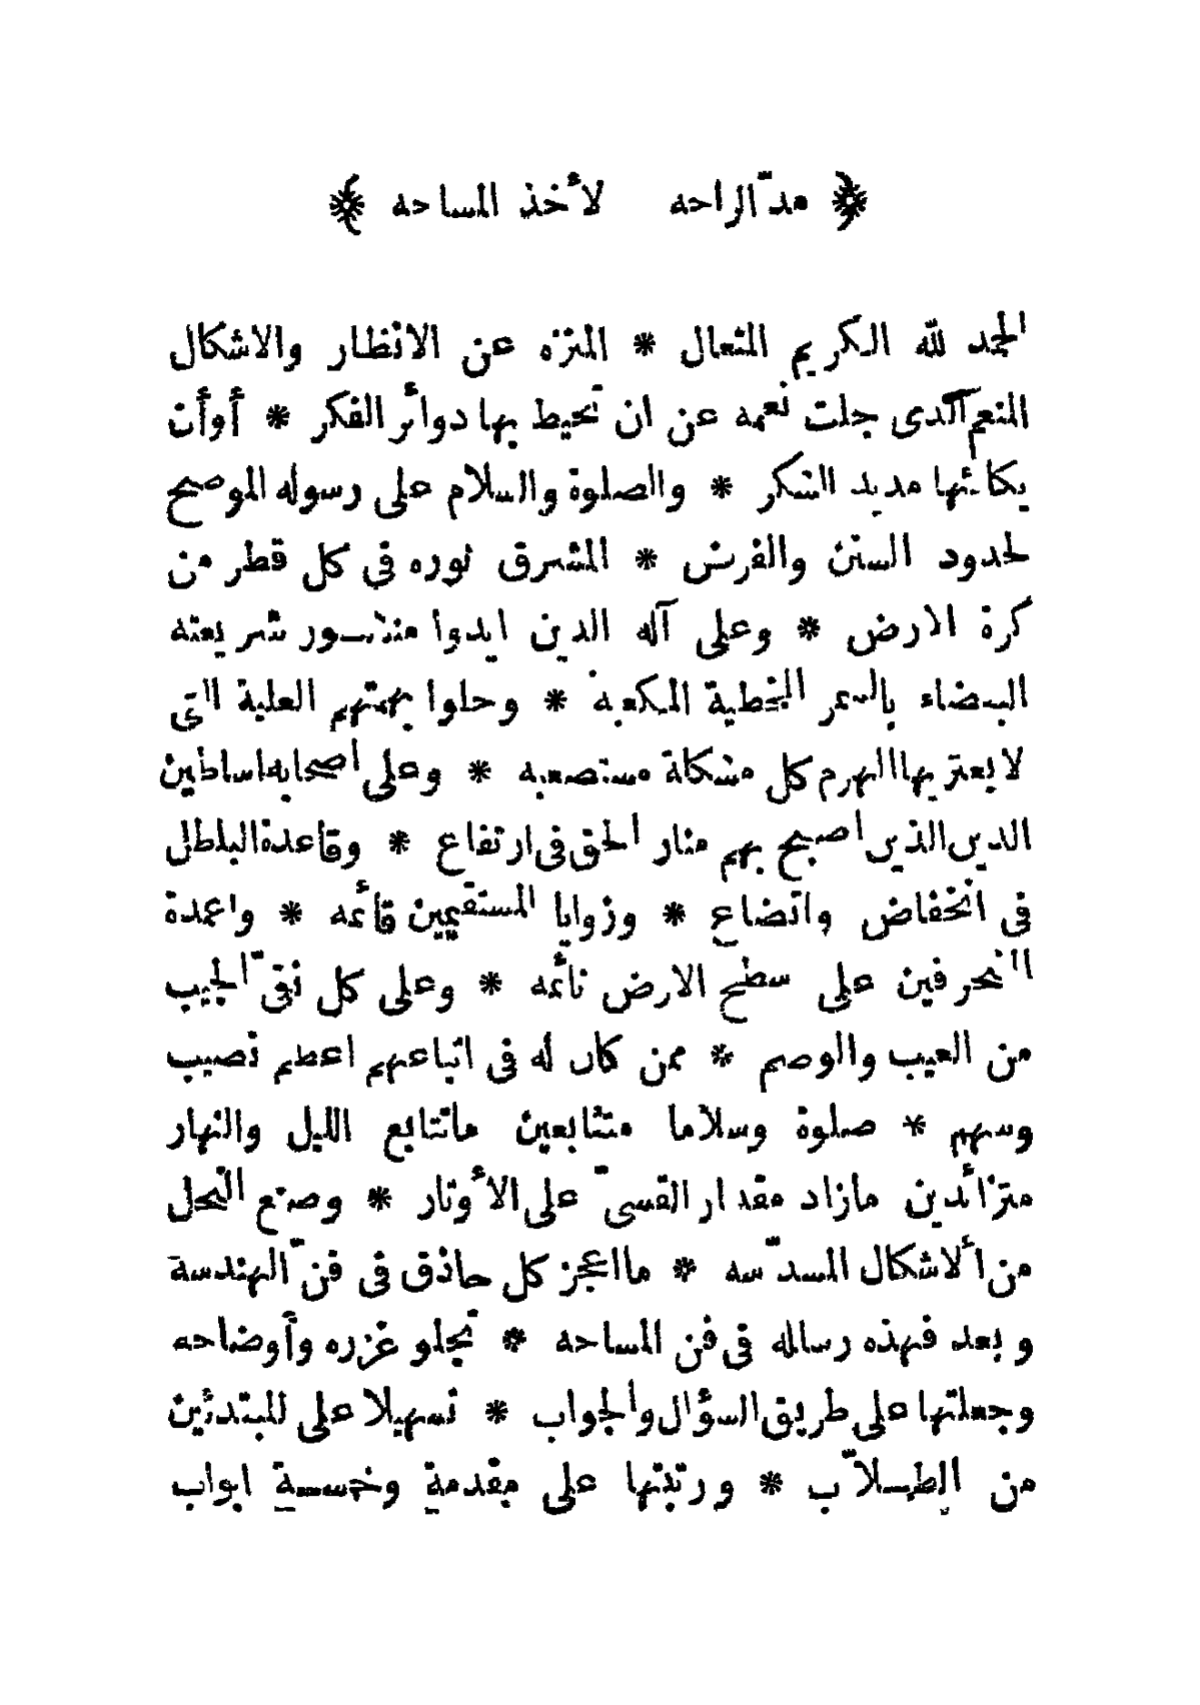 ﴿ مدّ الراحه لأخذ المساحه ﴾
الحمد لله الكريم المتعال * المنزه عن الانظار والاشكال
المنعم الذى جلت نعمه عن ان تحيط بها دوائر الفكر * أوأن
يكافئها مديد الشكر * والصلوة والسلام على رسوله الموضح
لحدود السنن والفرض * المشرق نوره فى كل قطر من
كرة الارض * وعلى آله الذين ايدوا منشور شريعته
البيضاء بالسمر الخطية المكعبه * وحلوا بهمتهم العلية التى
لا يعتريها الهرم كل مشكلة مستصعبه * وعلى اصحابه اساطين
الدين الذين اصبح بهم منار الحق فى ارتفاع * وقاعدة الباطل
فى انخفاض واتضاع * وزوايا المستقيمين قائمه * واعمدة
المنحرفين على سطح الارض نائمه * وعلى كل نقىّ الجيب
من العيب والوصم * ممن كان له فى اتباعهم اعظم نصيب
وسهم * صلوة وسلاما متتابعين ماتتابع الليل والنهار
متزائدين مازاد مقدار القسىّ على الأوتار * وصنع النحل
من ألاشكال المسدّسه * مااعجز كل حاذق فى فنّ الهندسة
و بعد فهذه رساله فى فن المساحه * تجلو غرره وأوضاحه
وجعلتها على طريق السؤال والجواب * تسهيلا على للمبتدئين
من الطلاّب * ورتبتها على مقدمة وخمسة ابواب